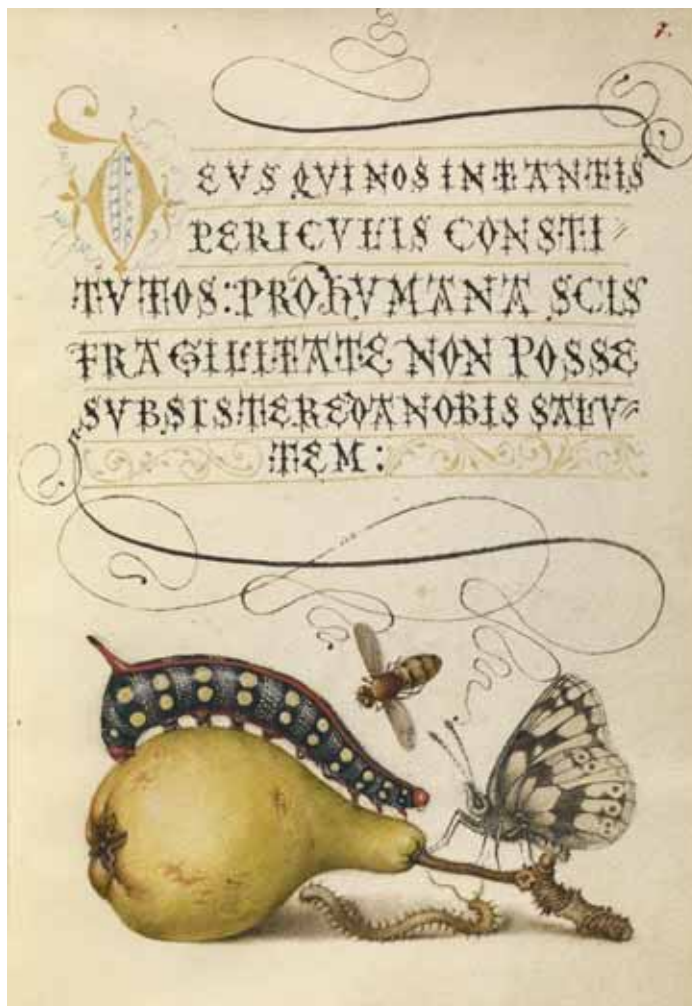 7.
DEVS QVI NOS IN TANTIS
PERICVLIS CONSTI=
TVTOS: PRO hVMANA SCIS
FRAGILITATE NON POSSE
SVBSISTERE DA NOBIS SALV=
TEM: